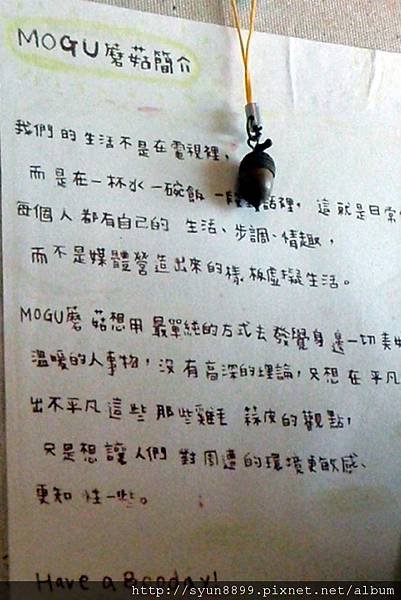 MOGU蘑菇簡介
我們的生活不是在電視裡，
而是在一杯水一碗飯一段話裡，這就是日常
每個人都有自己的生活、步調、情趣，
而不是媒體營造出來的樣板虛擬生活。
MOGU蘑菇想用最單純的方式去發覺身邊一切美
溫暖的人事物，沒有高深的理論，只想在平凡
出不平凡這些那些雞毛蒜皮的觀點，
只是想讓人們對周遭的環境更敏感、
更知性一些。
Have a Good day!
http://syun8899.pixnet.net/album